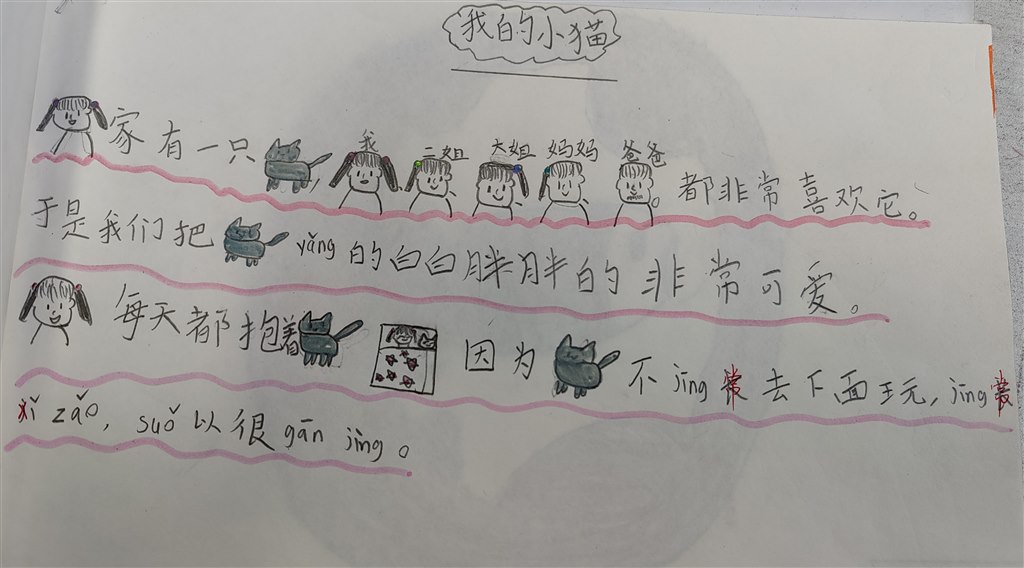 我的小猫
家有一只
我 二姐 大姐 妈妈 爸爸
都非常喜欢它。
于是我们把yǎng的白白胖胖的非常可爱。
每天都抱着 因为 不jīng常去下面玩,jīng常
xǐ zǎo, suǒ以很gān jìng。